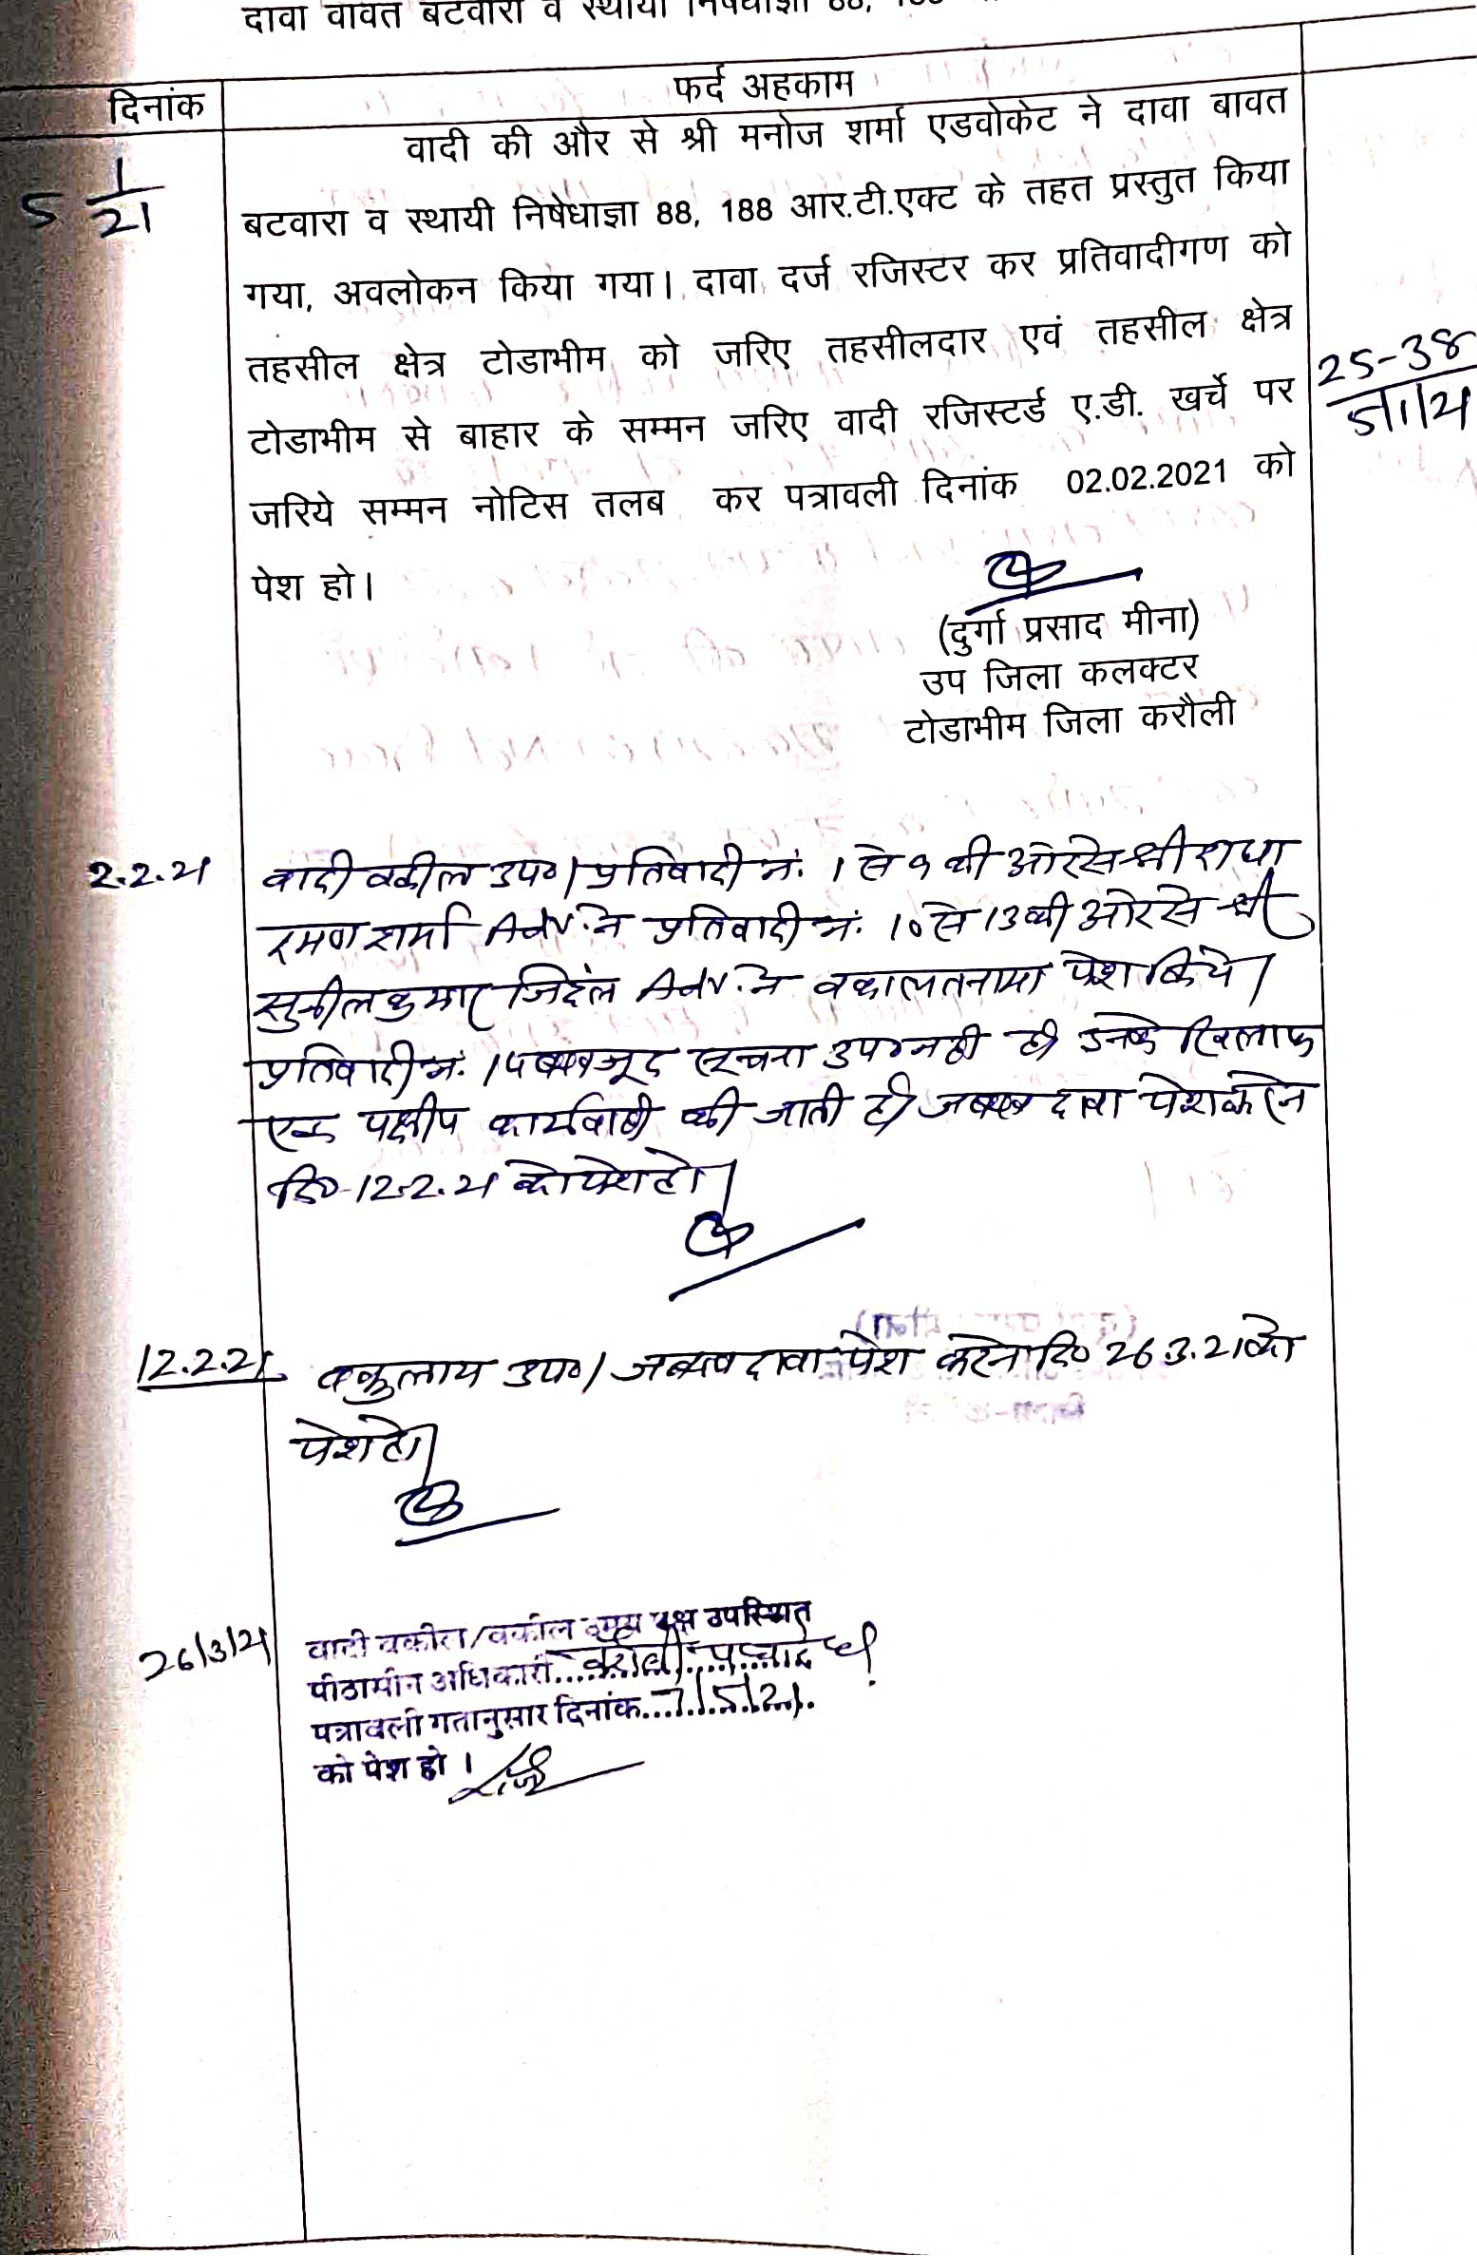 दावा वावत बटवारा व स्थायी निषेधाज्ञा 88, 188
दिनांक
फर्द अहकाम
5 1/21
वादी की और से श्री मनोज शर्मा एडवोकेट ने दावा बावत
बटवारा व स्थायी निषेधाज्ञा 88, 188 आर.टी.एक्ट के तहत प्रस्तुत किया
गया, अवलोकन किया गया। दावा दर्ज रजिस्टर कर प्रतिवादीगण को
तहसील क्षेत्र टोडाभीम को जरिए तहसीलदार एवं तहसील क्षेत्र
टोडाभीम से बाहार के सम्मन जरिए वादी रजिस्टर्ड ए.डी. खर्चे पर
जरिये सम्मन नोटिस तलब कर पत्रावली दिनांक 02.02.2021 को
पेश हो।
25-38
5/1/21
(दुर्गा प्रसाद मीना)
उप जिला कलक्टर
टोडाभीम जिला करौली
2.2.21 वादी वकील उप०। प्रतिवादी नं. 1 से 9 की ओर से श्री राधा
रमण शर्मा Adv. ने प्रतिवादी नं. 10 से 13 की ओर से श्री
सुनीलकुमार जिंदल Adv. ने वकालतनामा पेश किये।
प्रतिवादी नं. 14 बावजूद सूचना उप० नही है। उनके खिलाफ
एक पक्षीय कार्यवाही की जाती है। जबाब दावा पेश करने
दि० 12.2.21 को पेश हो।
12.2.21 वकुलाय उप०। जबाब दावा पेश करने दि० 26.3.21 को
पेश हो।
26/3/21 वादी वकील/वकील उभय पक्ष उपस्थित
पीठासीन अधिकारी
पत्रावली गतानुसार दिनांक...7/5/21.
को पेश हो।